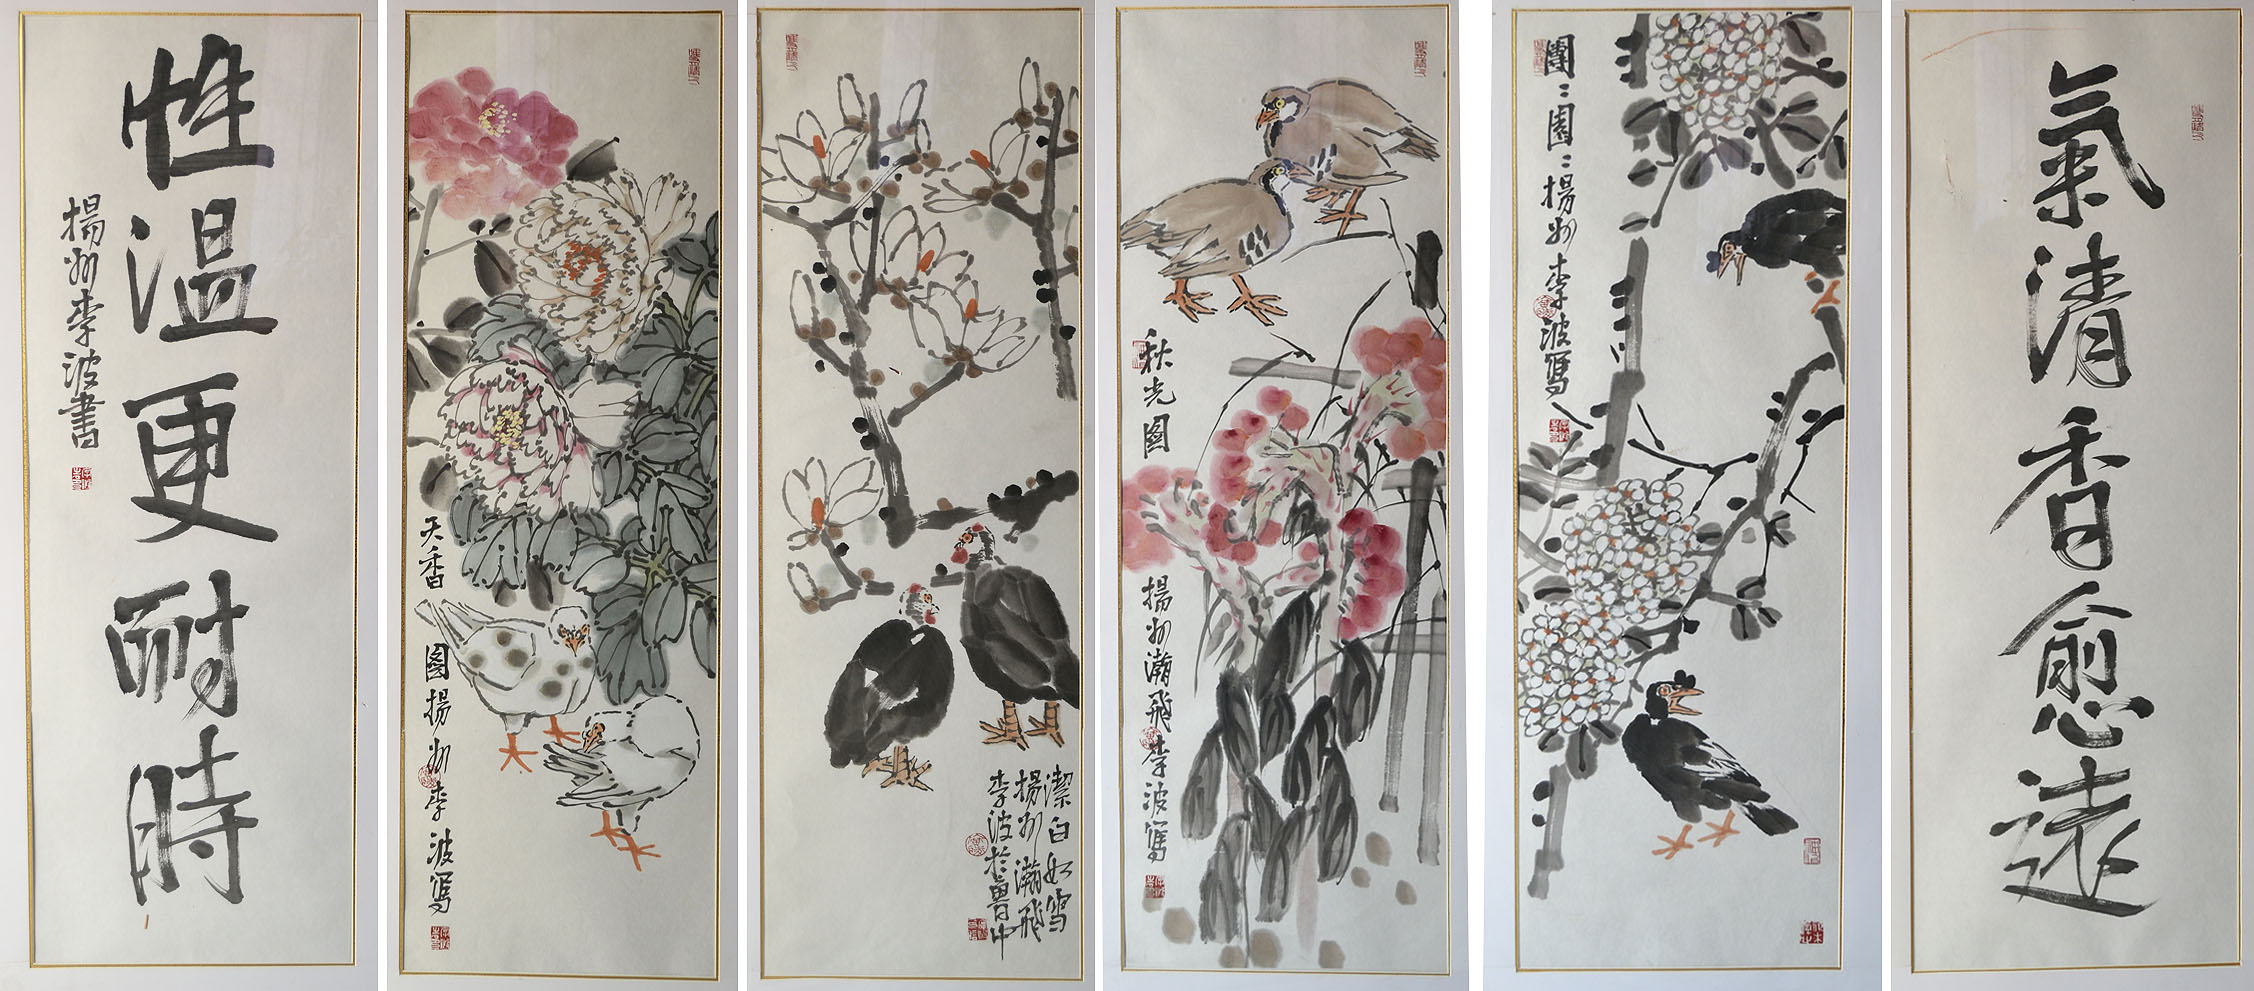 氣清香愈遠
團〻圓〻揚州李波寫
秋光圖
揚州瀚飛李波寫
潔白如雪
揚州瀚飛
李波於魯中
天香圖揚州李波寫
性溫更耐時
揚州李波書